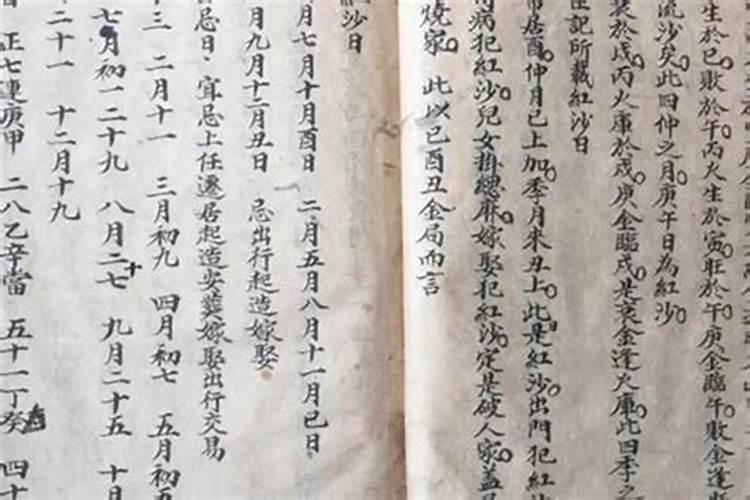 生於巳敗於午丙火生於寅旺於午庚金臨午敗金逢
流沙矣此四仲之月庚午日為紅沙
於戌丙火庫於戌庚金臨戌是衰金逢火庫此四季之
記所載紅沙日
居酉仲月巳上加季月未丑上此是紅沙出門犯紅
病犯紅沙兒女掛緦麻嫁娶犯紅沙定是破人家蓋
燒家 此以巳酉丑金局而言
紅沙日
月七月十月酉日 二月五月八月十一月巳日
月九月十二月丑日 忌出行起造嫁娶
忌日 宜忌上任遷居起造安葬嫁娶出行交易
十三 二月十一 三月初九 四月初七 五月初五
七月初一二十九 八月二十七 九月二十五 十月
二十一 十二月十九
正七連庚甲 二八乙辛當 五十一丁癸 四十